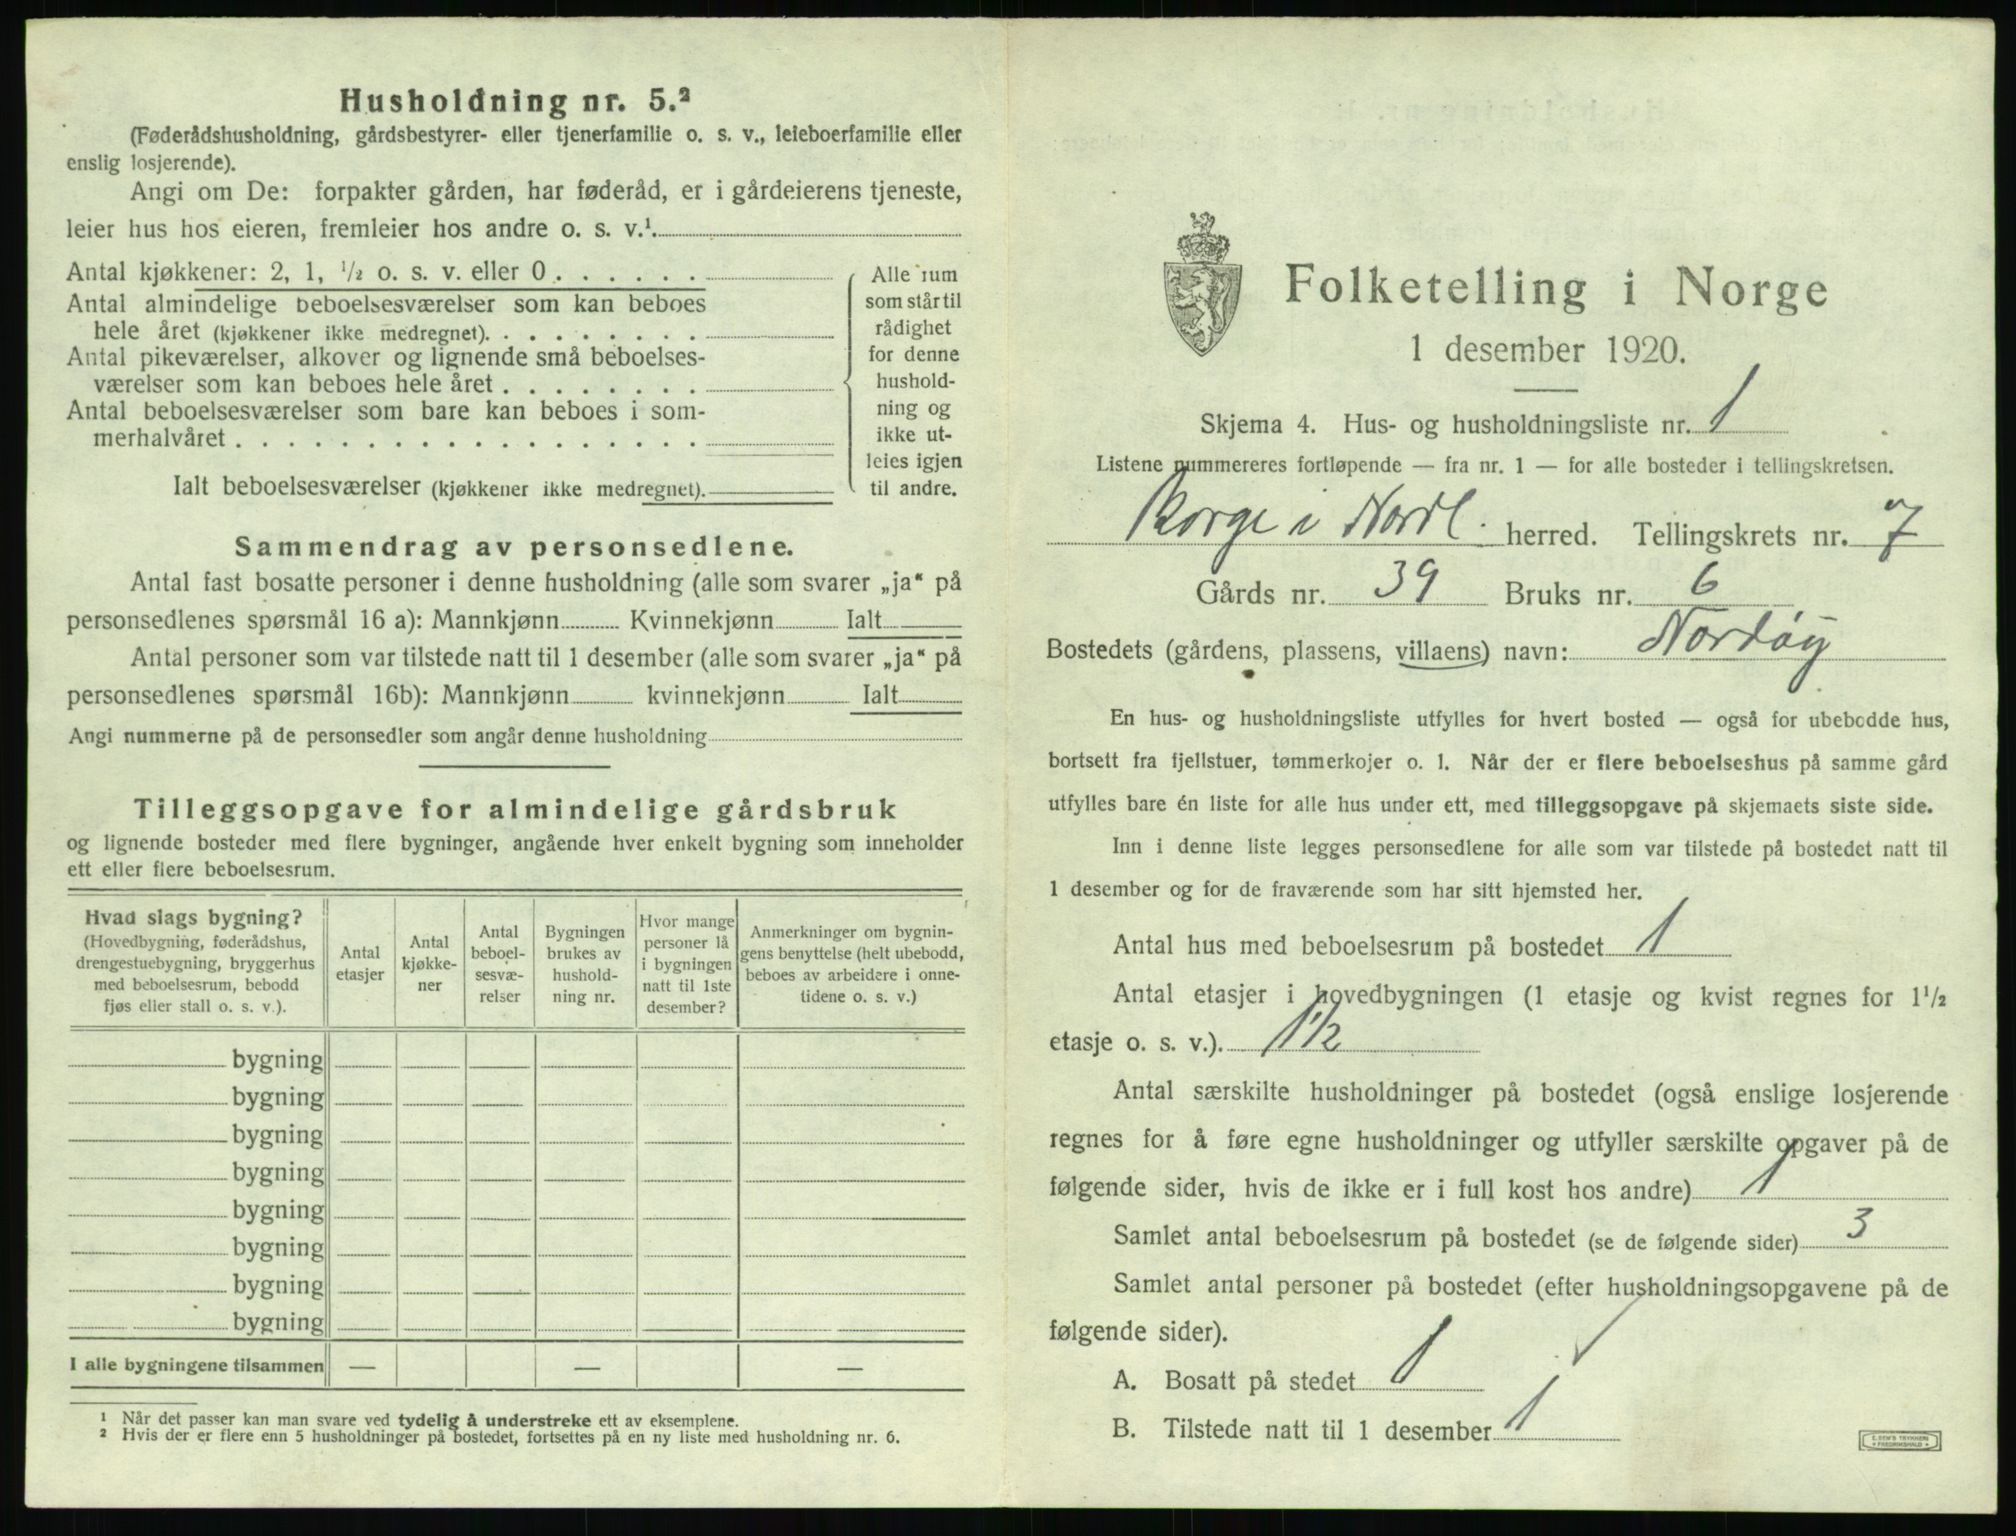 Husholdning nr. 5.²
(Føderådshusholdning, gårdsbestyrer- eller tjenerfamilie o. s. v., leieboerfamilie eller
enslig losjerende).
Angi om De: forpakter gården, har føderåd, er i gårdeierens tjeneste,
leier hus hos eieren, fremleier hos andre o. s. v.¹
Antal kjøkkener: 2, 1, ½ o. s. v. eller 0 . . . . . .
Antal almindelige beboelsesværelser som kan beboes
hele året (kjøkkener ikke medregnet). . . . . . . . .
Antal pikeværelser, alkover og lignende små beboelses-
værelser som kan beboes hele året . . . . . . . .
Antal beboelsesværelser som bare kan beboes i som-
merhalvåret . . . . . . . . . . . . . . . . . .
Ialt beboelsesværelser (kjøkkener ikke medregnet).
Alle rum
som står til
rådighet
for denne
hushold-
ning og
ikke ut-
leies igjen
til andre.
Sammendrag av personsedlene.
Antal fast bosatte personer i denne husholdning (alle som svarer „ja“ på
personsedlenes spørsmål 16 a): Mannkjønn Kvinnekjønn Ialt
Antal personer som var tilstede natt til 1 desember (alle som svarer „ja“ på
personsedlenes spørsmål 16b): Mannkjønn kvinnekjønn Ialt
Angi nummerne på de personsedler som angår denne husholdning
Tilleggsopgave for almindelige gårdsbruk
og lignende bosteder med flere bygninger, angående hver enkelt bygning som inneholder
ett eller flere beboelsesrum.
Hvad slags bygning?
(Hovedbygning, føderådshus,
drengestuebygning, bryggerhus
med beboelsesrum, bebodd
fjøs eller stall o. s. v.).
Antal
etasjer
Antal
kjøkke-
ner
Antal
beboel-
sesvæ-
relser
Bygningen
brukes av
hushold-
ning nr.
Hvor mange
personer lå
i bygningen
natt til 1ste
desember?
Anmerkninger om bygnin-
gens benyttelse (helt ubebodd,
beboes av arbeidere i onne-
tidene o. s. v.)
bygning
bygning
bygning
bygning
bygning
bygning
bygning
bygning
I alle bygningene tilsammen — — —
¹ Når det passer kan man svare ved tydelig å understreke ett av eksemplene.
² Hvis der er flere enn 5 husholdninger på bostedet, fortsettes på en ny liste med husholdning nr. 6.
Folketelling i Norge
1 desember 1920.
Skjema 4. Hus- og husholdningsliste nr. 1
Listene nummereres fortløpende — fra nr. 1 — for alle bosteder i tellingskretsen.
Borge i Nordl. herred. Tellingskrets nr. 7
Gårds nr. 39 Bruks nr. 6
Bostedets (gårdens, plassens, villaens) navn: Nordøy
En hus- og husholdningsliste utfylles for hvert bosted — også for ubebodde hus,
bortsett fra fjellstuer, tømmerkojer o. l. Når der er flere beboelseshus på samme gård
utfylles bare én liste for alle hus under ett, med tilleggsopgave på skjemaets siste side.
Inn i denne liste legges personsedlene for alle som var tilstede på bostedet natt til
1 desember og for de fraværende som har sitt hjemsted her.
Antal hus med beboelsesrum på bostedet 1
Antal etasjer i hovedbygningen (1 etasje og kvist regnes for 1½
etasje o. s. v.). 1½
Antal særskilte husholdninger på bostedet (også enslige losjerende
regnes for å føre egne husholdninger og utfyller særskilte opgaver på de
følgende sider, hvis de ikke er i full kost hos andre) 1
Samlet antal beboelsesrum på bostedet (se de følgende sider) 3
Samlet antal personer på bostedet (efter husholdningsopgavene på de
følgende sider).
A. Bosatt på stedet 1
B. Tilstede natt til 1 desember 1
E. SEM'S TRYKKERI
FREDRIKSHALD